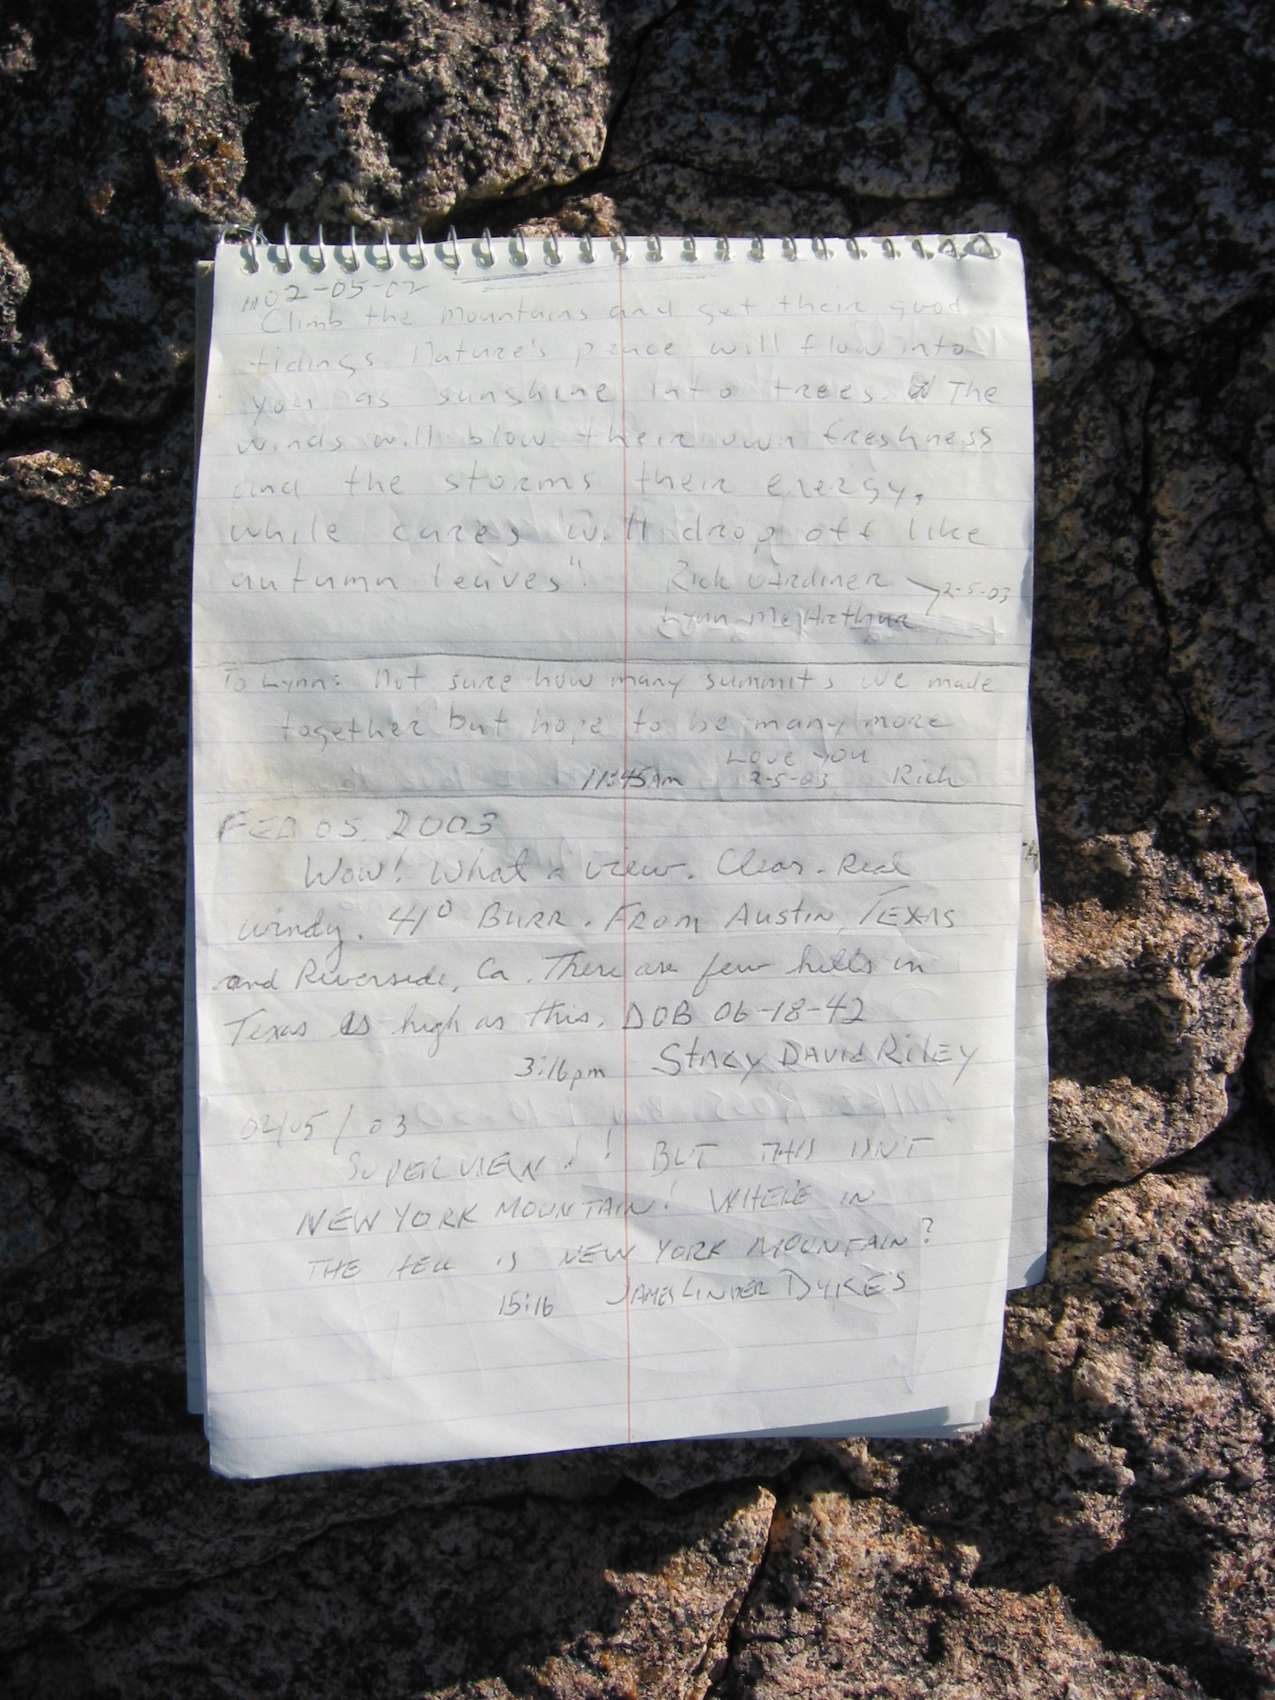 02-05-02
"Climb the mountains and get their good
tidings. Nature's peace will flow into
you as sunshine into trees. The
winds will blow their own freshness
and the storms their energy,
while cares will drop off like
autumn leaves".
Rick Gardiner
2-5-03
Lynn McArthur
To Lynn: Not sure how many summits we made
together but hope to be many more
Love you
11:45am 2-5-03 Rick
FEB 05, 2003
Wow! What a view. Clear. Real
windy. 41° BURR. FROM AUSTIN, TEXAS
and Riverside, Ca. There are few hills in
Texas as high as this. DOB 06-18-42
3:16pm STACY DAVID RILEY
02/05/03
SUPER VIEW!! BUT THIS ISN'T
NEW YORK MOUNTAIN! WHERE IN
THE HELL IS NEW YORK MOUNTAIN?
15:16 JAMES LINDER DYKES